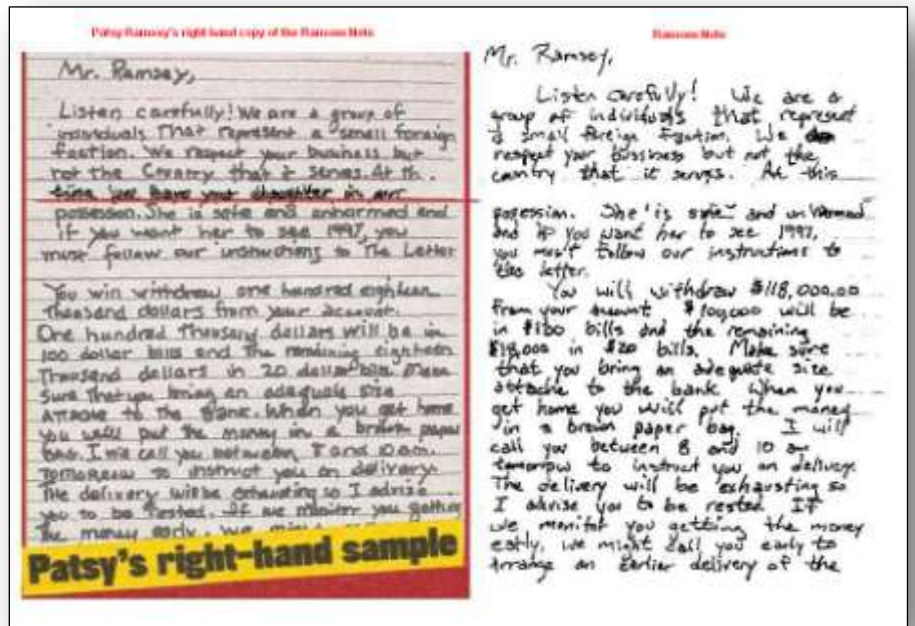 Patsy Ramsey's right-hand copy of the Ransom Note
Mr. Ramsey,
Listen carefully! We are a group of
individuals That represent a small foreign
faction. We respect your business but
not the Country that it serves. At th.
time we have your daughter in our
possession. She is safe and unharmed and
if you want her to see 1997, you
must follow our instructions to The Letter
You will withdraw one hundred eighteen
Thousand dollars from your account.
One hundred Thousand dollars will be in
100 dollar bills and The remaining eighteen
Thousand dollars in 20 dollar bills.
Sure That you bring an adequate size
ATTACHE to the Bank. When you get home
you will put the money in a brown paper
bag. I will call you between 8 and 10 am.
TOMORROW to instruct you on delivery.
The delivery will be exhausting so I advise
you to be rested. If we monitor you getting
The money early, we might
Patsy's right-hand sample
Ransom Note
Mr. Ramsey,
Listen carefully! We are a
group of individuals that represent
a small foreign faction. We
respect your bussiness but not the
country that it serves. At this
posession. She is safe and unharmed
and if you want her to see 1997,
you must follow our instructions to
the letter.
You will withdraw $118,000.00
from your account. $100,000 will be
in $100 bills and the remaining
$18,000 in $20 bills. Make sure
that you bring an adequate size
attache to the bank. When you
get home you will put the money
in a brown paper bag. I will
call you between 8 and 10 am
tomorrow to instruct you on delivery.
The delivery will be exhausting so
I advise you to be rested. If
we monitor you getting the money
early, we might call you early to
arrange an earlier delivery of the